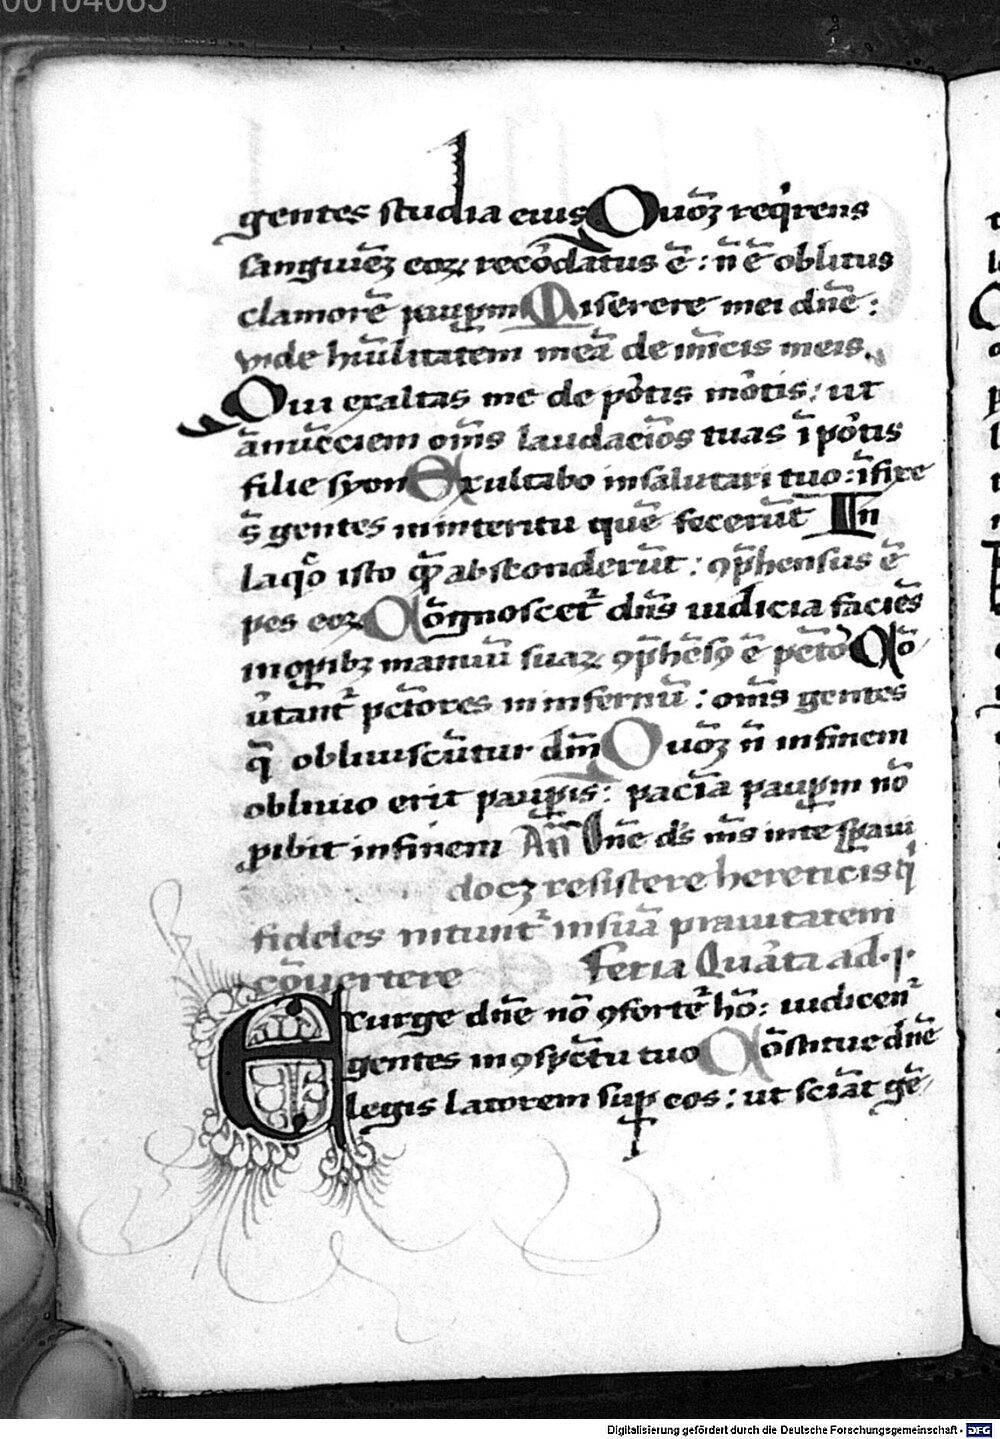 00104065
gentes studia eius Quōꝫ reqͥrens
sanguīeꝫ eoꝝ recōdatus ē : n̄ ē oblitus
clamorē paup̲m Miserere mei dn̄e :
vide hūilitatem meā de inīcis meis.
Qui exaltas me de pōtis mōtis : ut
ānūcciem om̄s laudacīos tuas ī pōtis
filie syon Exultabo insalutari tuo : īfixe
s̄ gentes in interitu quē fecerūt In
laqͦo isto quē absconderūt : ꝯp̄hensus ē
pes eoꝝ Cōgnoscet᷑ dn̄s iudicia faciēs
in oꝑibꝫ manuū suaꝝ ꝯp̄hēsꝰ ē pct̄or Cō
ūtant᷑ pct̄ores in infernū : om̄s gentes
q̄ obliuiscūtur dm̄ Quōꝫ n̄ infinem
obliuio erit paup̲is : paciā paup̲m nō
ꝑibit infinem An̄ Dn̄e ds̄ m̄s inte sꝑaui
docꝫ resistere hereticis qͥ
fideles nitunt᷑ insuā prauitatem
cōuertere Feria Quāta ad .p.
Exurge dn̄e nō ꝯfortet᷑ hō : iudicent᷑
gentes in ꝯspc̄tu tuo Cōstitue dn̄e
legis latorem suꝑ eos : ut sciāt gē
Digitalisierung gefördert durch die Deutsche Forschungsgemeinschaft - DFG